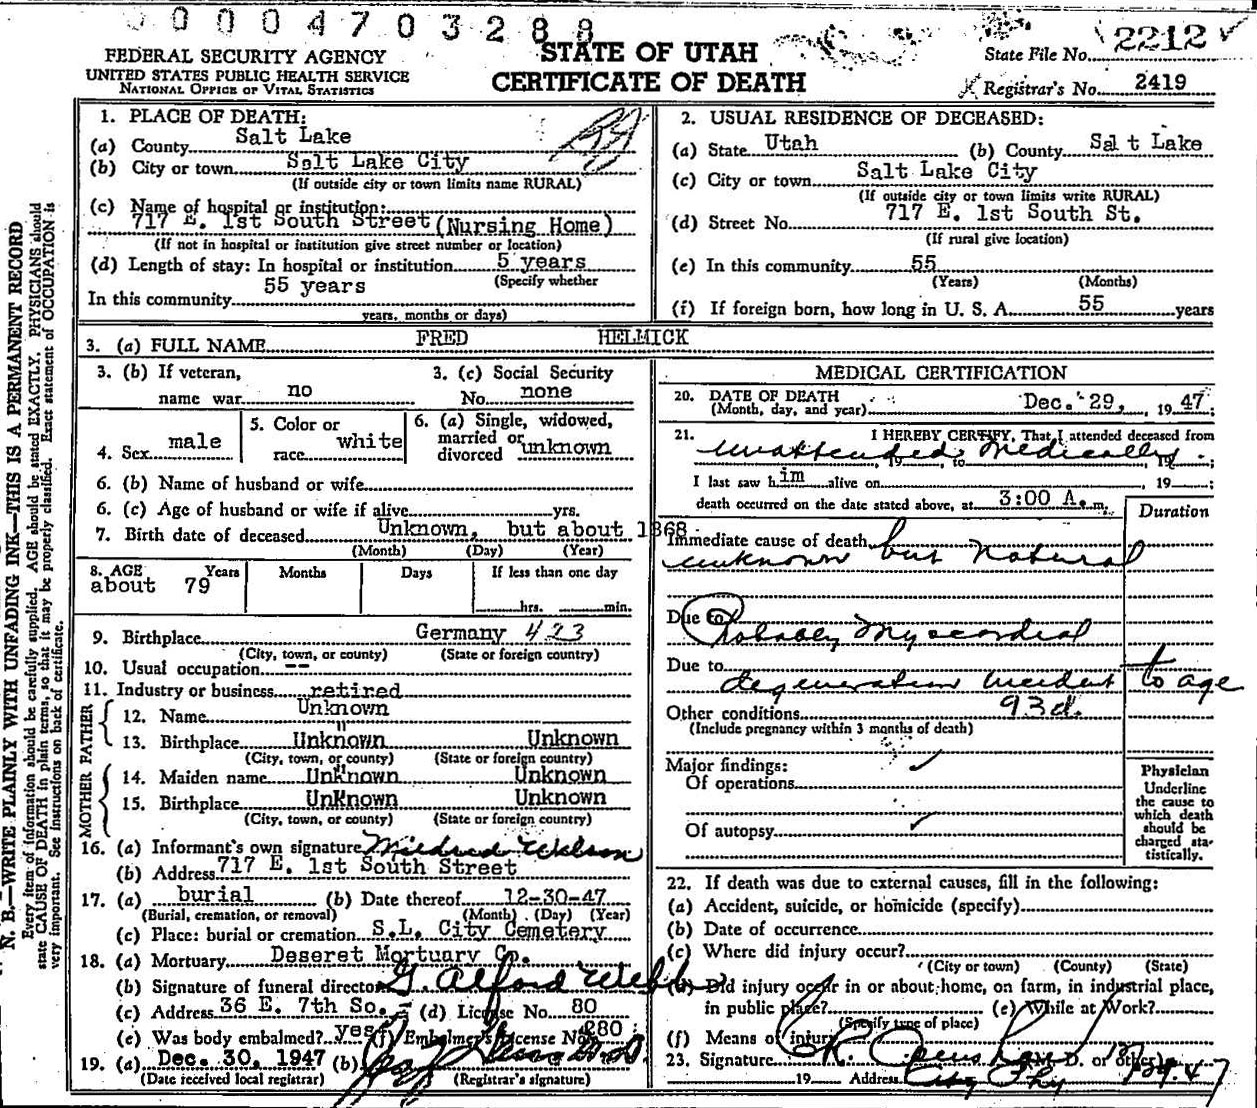 0004703288
FEDERAL SECURITY AGENCY
UNITED STATES PUBLIC HEALTH SERVICE
NATIONAL OFFICE OF VITAL STATISTICS
STATE OF UTAH
CERTIFICATE OF DEATH
State File No. 2212
Registrar's No. 2419
N. B.—WRITE PLAINLY WITH UNFADING INK—THIS IS A PERMANENT RECORD
Every item of information should be carefully supplied. AGE should be stated EXACTLY. PHYSICIANS should
state CAUSE OF DEATH in plain terms, so that it may be properly classified. Exact statement of OCCUPATION is
very important. See instructions on back of certificate.
1. PLACE OF DEATH:
(a) County Salt Lake
(b) City or town Salt Lake City
(If outside city or town limits name RURAL)
(c) Name of hospital or institution:
717 E. 1st South Street (Nursing Home)
(If not in hospital or institution give street number or location)
(d) Length of stay: In hospital or institution 5 years
(Specify whether
In this community 55 years
years, months or days)
2. USUAL RESIDENCE OF DECEASED:
(a) State Utah (b) County Sal t Lake
(c) City or town Salt Lake City
(If outside city or town limits write RURAL)
(d) Street No. 717 E. 1st South St.
(If rural give location)
(e) In this community 55
(Years) (Months)
(f) If foreign born, how long in U. S. A. 55 years
3. (a) FULL NAME FRED HELMICK
3. (b) If veteran,
name war no
3. (c) Social Security
No. none
4. Sex male
5. Color or
race white
6. (a) Single, widowed,
married or
divorced unknown
6. (b) Name of husband or wife
6. (c) Age of husband or wife if alive yrs.
7. Birth date of deceased Unknown, but about 1868
(Month) (Day) (Year)
8. AGE Years Months Days If less than one day
about 79
hrs. min.
9. Birthplace Germany 423
(City, town, or county) (State or foreign country)
10. Usual occupation --
11. Industry or business retired
FATHER
12. Name Unknown
13. Birthplace Unknown Unknown
(City, town, or county) (State or foreign country)
MOTHER
14. Maiden name Unknown Unknown
15. Birthplace Unknown Unknown
(City, town, or county) (State or foreign country)
16. (a) Informant's own signature Mildred Wilson
(b) Address 717 E. 1st South Street
17. (a) burial (b) Date thereof 12-30-47
(Burial, cremation, or removal) (Month) (Day) (Year)
(c) Place: burial or cremation S.L. City Cemetery
18. (a) Mortuary Deseret Mortuary Co.
(b) Signature of funeral director G Alford Webb
(c) Address 36 E. 7th So. (d) License No. 80
(e) Was body embalmed? yes (f) Embalmer's License No. 280
19. (a) Dec. 30, 1947 (b)
(Date received local registrar) (Registrar's signature)
MEDICAL CERTIFICATION
20. DATE OF DEATH
(Month, day, and year) Dec. 29, 1947;
21. I HEREBY CERTIFY, That I attended deceased from
unattended medically.
, 19 , to , 19 ;
I last saw him alive on , 19 ;
death occurred on the date stated above, at 3:00 A. m.
Duration
Immediate cause of death
unknown but natural
Due to
Probably Myocardial
Due to
degeneration incident to age
93d.
Other conditions
(Include pregnancy within 3 months of death)
Major findings:
Of operations
Of autopsy
Physician
Underline
the cause to
which death
should be
charged sta-
tistically.
22. If death was due to external causes, fill in the following:
(a) Accident, suicide, or homicide (specify)
(b) Date of occurrence
(c) Where did injury occur?
(City or town) (County) (State)
(d) Did injury occur in or about home, on farm, in industrial place,
in public place? (e) While at Work?
(Specify type of place)
(f) Means of injury
23. Signature (M. D. or other)
19 Address City Phy